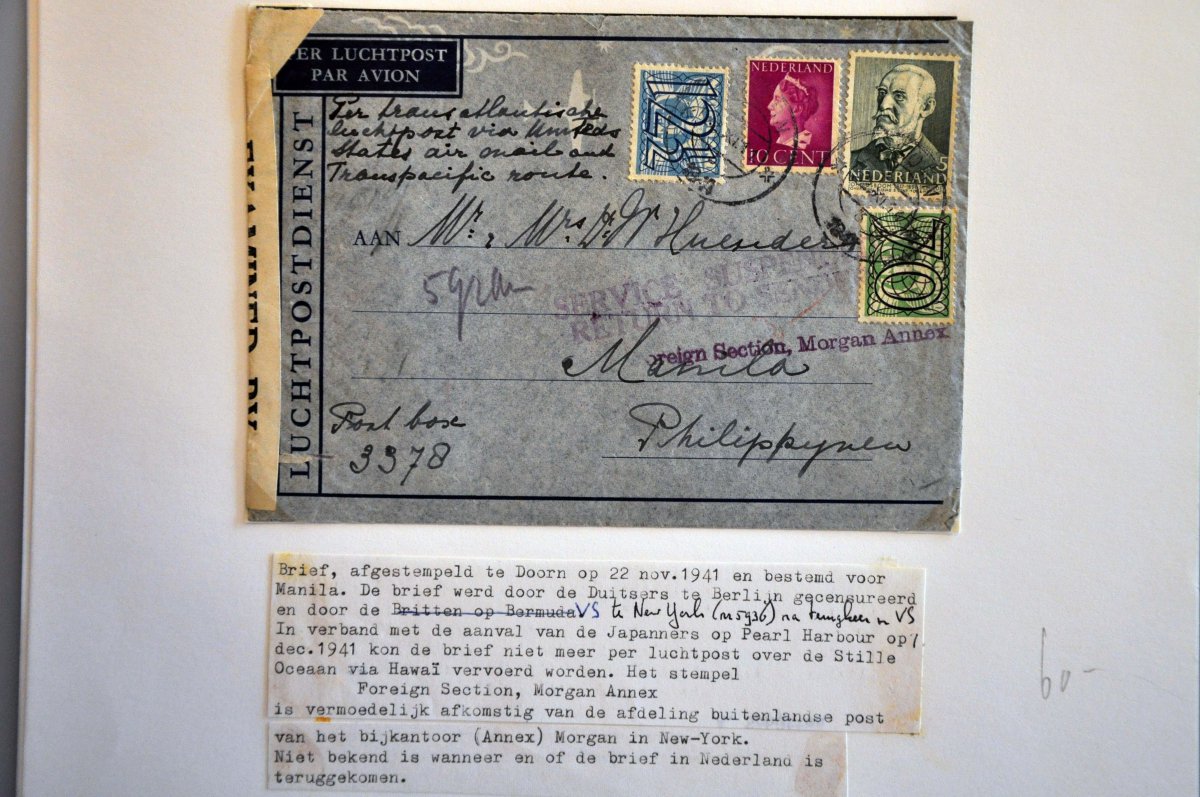 PER LUCHTPOST
PAR AVION
EXAMINED BY
LUCHTPOSTDIENST
Per transatlantische
luchtpost via United
States air mail and
Transpacific route.
12½
NEDERLAND
10 CENT
5
NEDERLAND
40
AAN Mr. & Mrs. H. W. Huenders
5 gram
SERVICE SUSPEN
RETURN TO SENDE
oreign Section, Morgan Annex
Manila
Post box
3378
Philippynen
Brief, afgestempeld te Doorn op 22 nov.1941 en bestemd voor
Manila. De brief werd door de Duitsers te Berlijn gecensureerd
en door de Britten op Bermuda VS te New York (n 5936) na terugkeer in VS
In verband met de aanval van de Japanners op Pearl Harbour op 7
dec.1941 kon de brief niet meer per luchtpost over de Stille
Oceaan via Hawaï vervoerd worden. Het stempel
Foreign Section, Morgan Annex
is vermoedelijk afkomstig van de afdeling buitenlandse post
van het bijkantoor (Annex) Morgan in New-York.
Niet bekend is wanneer en of de brief in Nederland is
teruggekomen.
60-